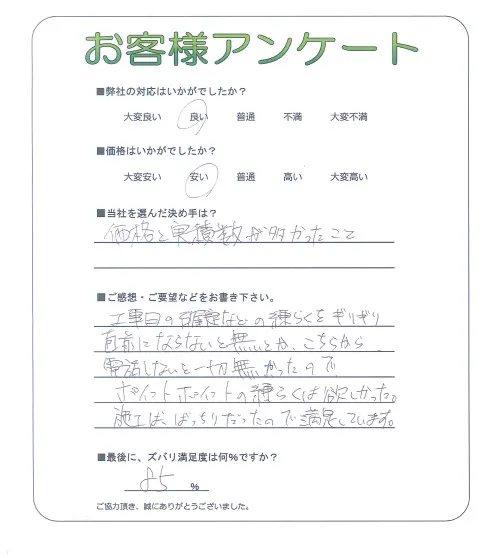 お客様アンケート
■弊社の対応はいかがでしたか?
大変良い 良い 普通 不満 大変不満
■価格はいかがでしたか?
大変安い 安い 普通 高い 大変高い
■当社を選んだ決め手は?
価格と実積数が多かったこと
■ご感想・ご要望などをお書き下さい。
工事日の確定などの連らくをギリギリ
直前にならないと無いとか、こちらから
電話しないと一切無かったので
ポイントポイントの連らくは欲しかった。
施工は、ばっちりだったので満足しています。
■最後に、ズバリ満足度は何%ですか?
85 %
ご協力頂き、誠にありがとうございました。